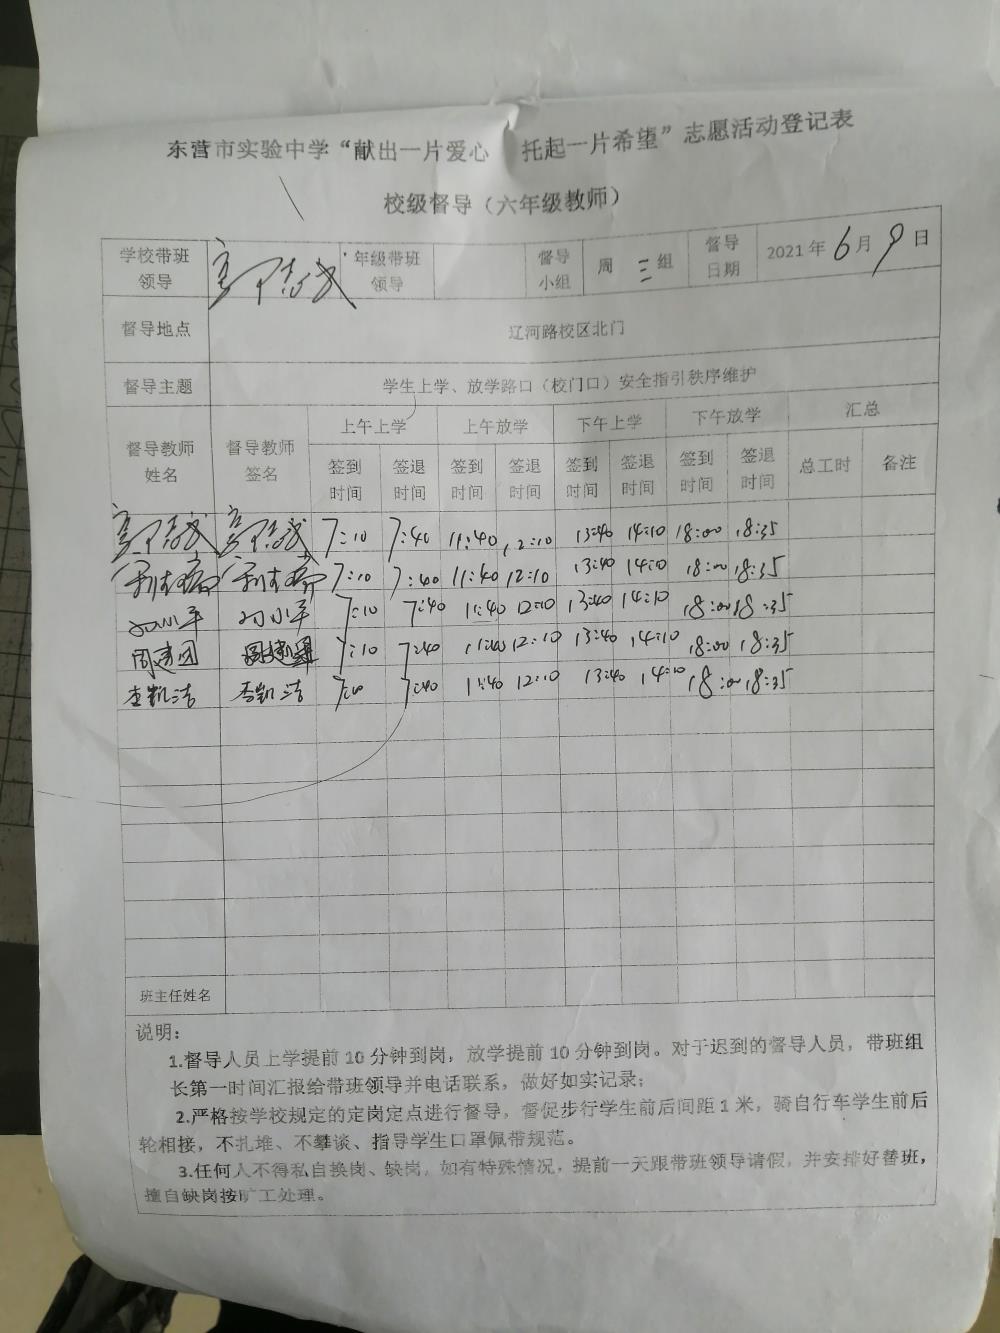 东营市实验中学“献出一片爱心 托起一片希望”志愿活动登记表
校级督导（六年级教师）
学校带班领导 年级带班领导 督导小组 周三组 督导日期 2021年6月9日
督导地点 辽河路校区北门
督导主题 学生上学、放学路口（校门口）安全指引秩序维护
督导教师姓名 督导教师签名 上午上学 上午放学 下午上学 下午放学 汇总
签到时间 签退时间 签到时间 签退时间 签到时间 签退时间 签到时间 签退时间 总工时 备注
7:10 7:40 11:40 12:10 13:40 14:10 18:00 18:35
7:10 7:40 11:40 12:10 13:40 14:10 18:00 18:35
7:10 7:40 11:40 12:10 13:40 14:10 18:00 18:35
周建国 周建国 7:10 7:40 11:40 12:10 13:40 14:10 18:00 18:35
李凯洁 李凯洁 7:10 7:40 11:40 12:10 13:40 14:10 18:00 18:35
班主任姓名
说明：
1.督导人员上学提前10分钟到岗，放学提前10分钟到岗。对于迟到的督导人员，带班组
长第一时间汇报给带班领导并电话联系，做好如实记录；
2.严格按学校规定的定岗定点进行督导，督促步行学生前后间距1米，骑自行车学生前后
轮相接，不扎堆、不攀谈、指导学生口罩佩带规范。
3.任何人不得私自换岗、缺岗，如有特殊情况，提前一天跟带班领导请假，并安排好替班，
擅自缺岗按旷工处理。